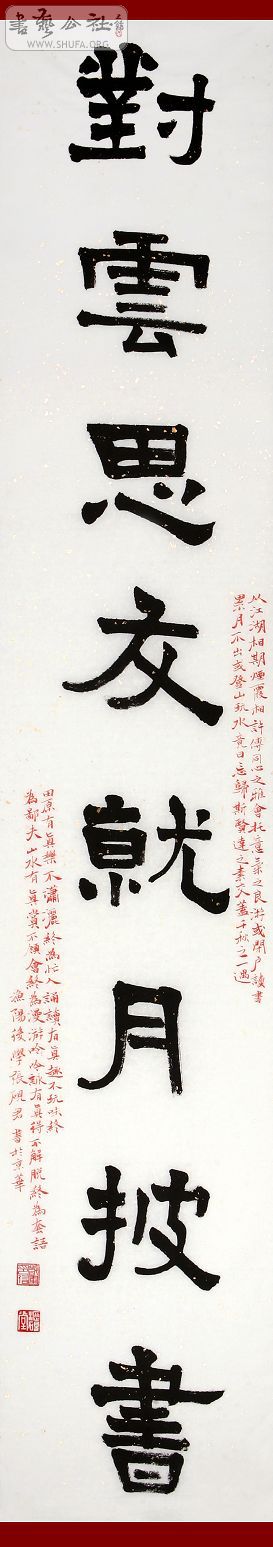 書藝公社
WWW.SHUFA.ORG
對雲思友就月披書
以江湖相期煙霞相許傅同心之雅會托意氣之良游或閉戶讀書
累月不出或登山玩水竟日忘歸斯賢達之素交蓋千秋之一遇
田原有真趣不瀟灑終為忙人誦讀有真趣不玩味終
為鄙夫山水有真賞不領會終為漫游吟咏有真得不解脫終為套語
漁陽後學張硯君書於京華